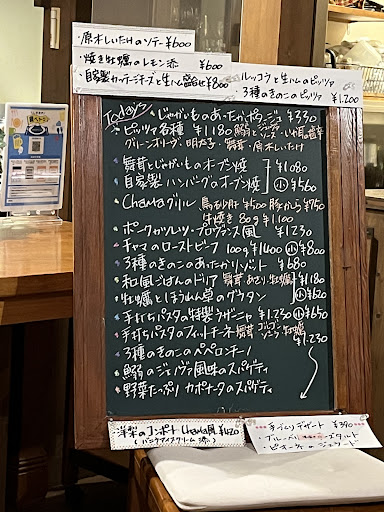 ・原木しいたけのソテー ¥600
・焼き牡蠣のレモン添 ¥600
・自家製カッテージチーズと生ハム ¥800
ルッコラと生ハムのピッツァ
3種のきのこのピッツァ ¥1,200
Today's
じゃがいものあったかポタージュ ¥330
ピッツァ各種 ¥1,180
グリーンオリーブ・明太子・舞茸・原木しいたけ
舞茸とじゃがいものオーブン焼 ¥1,080
自家製ハンバーグのオーブン焼 小 ¥560
Chamaグリル 鳥砂肝 ¥500 豚から ¥750
牛焼き 80g ¥1,100
ポークカツレツ・プロヴァンス風 ¥1,230
チャマのローストビーフ 100g ¥1400 小 ¥800
3種のきのこのあったかリゾット ¥680
和風ごはんのドリア 舞茸 あさり 牡蠣 ¥1,180
牡蠣とほうれん草のグラタン 小 ¥620
手打ちパスタの特製ラザーニャ ¥1,230 小 ¥650
手打ちパスタのフィットチーネ 舞茸 ゴルゴンゾーラ 牡蠣 ¥1,230
3種のきのこのペペロンチーノ
鰯のジェノヴァ風味のスパゲティ
野菜たっぷり カポナータのスパゲティ
洋梨のコンポート Chama風 ¥420
(バニラアイスクリーム添)
手づくりデザート ¥390